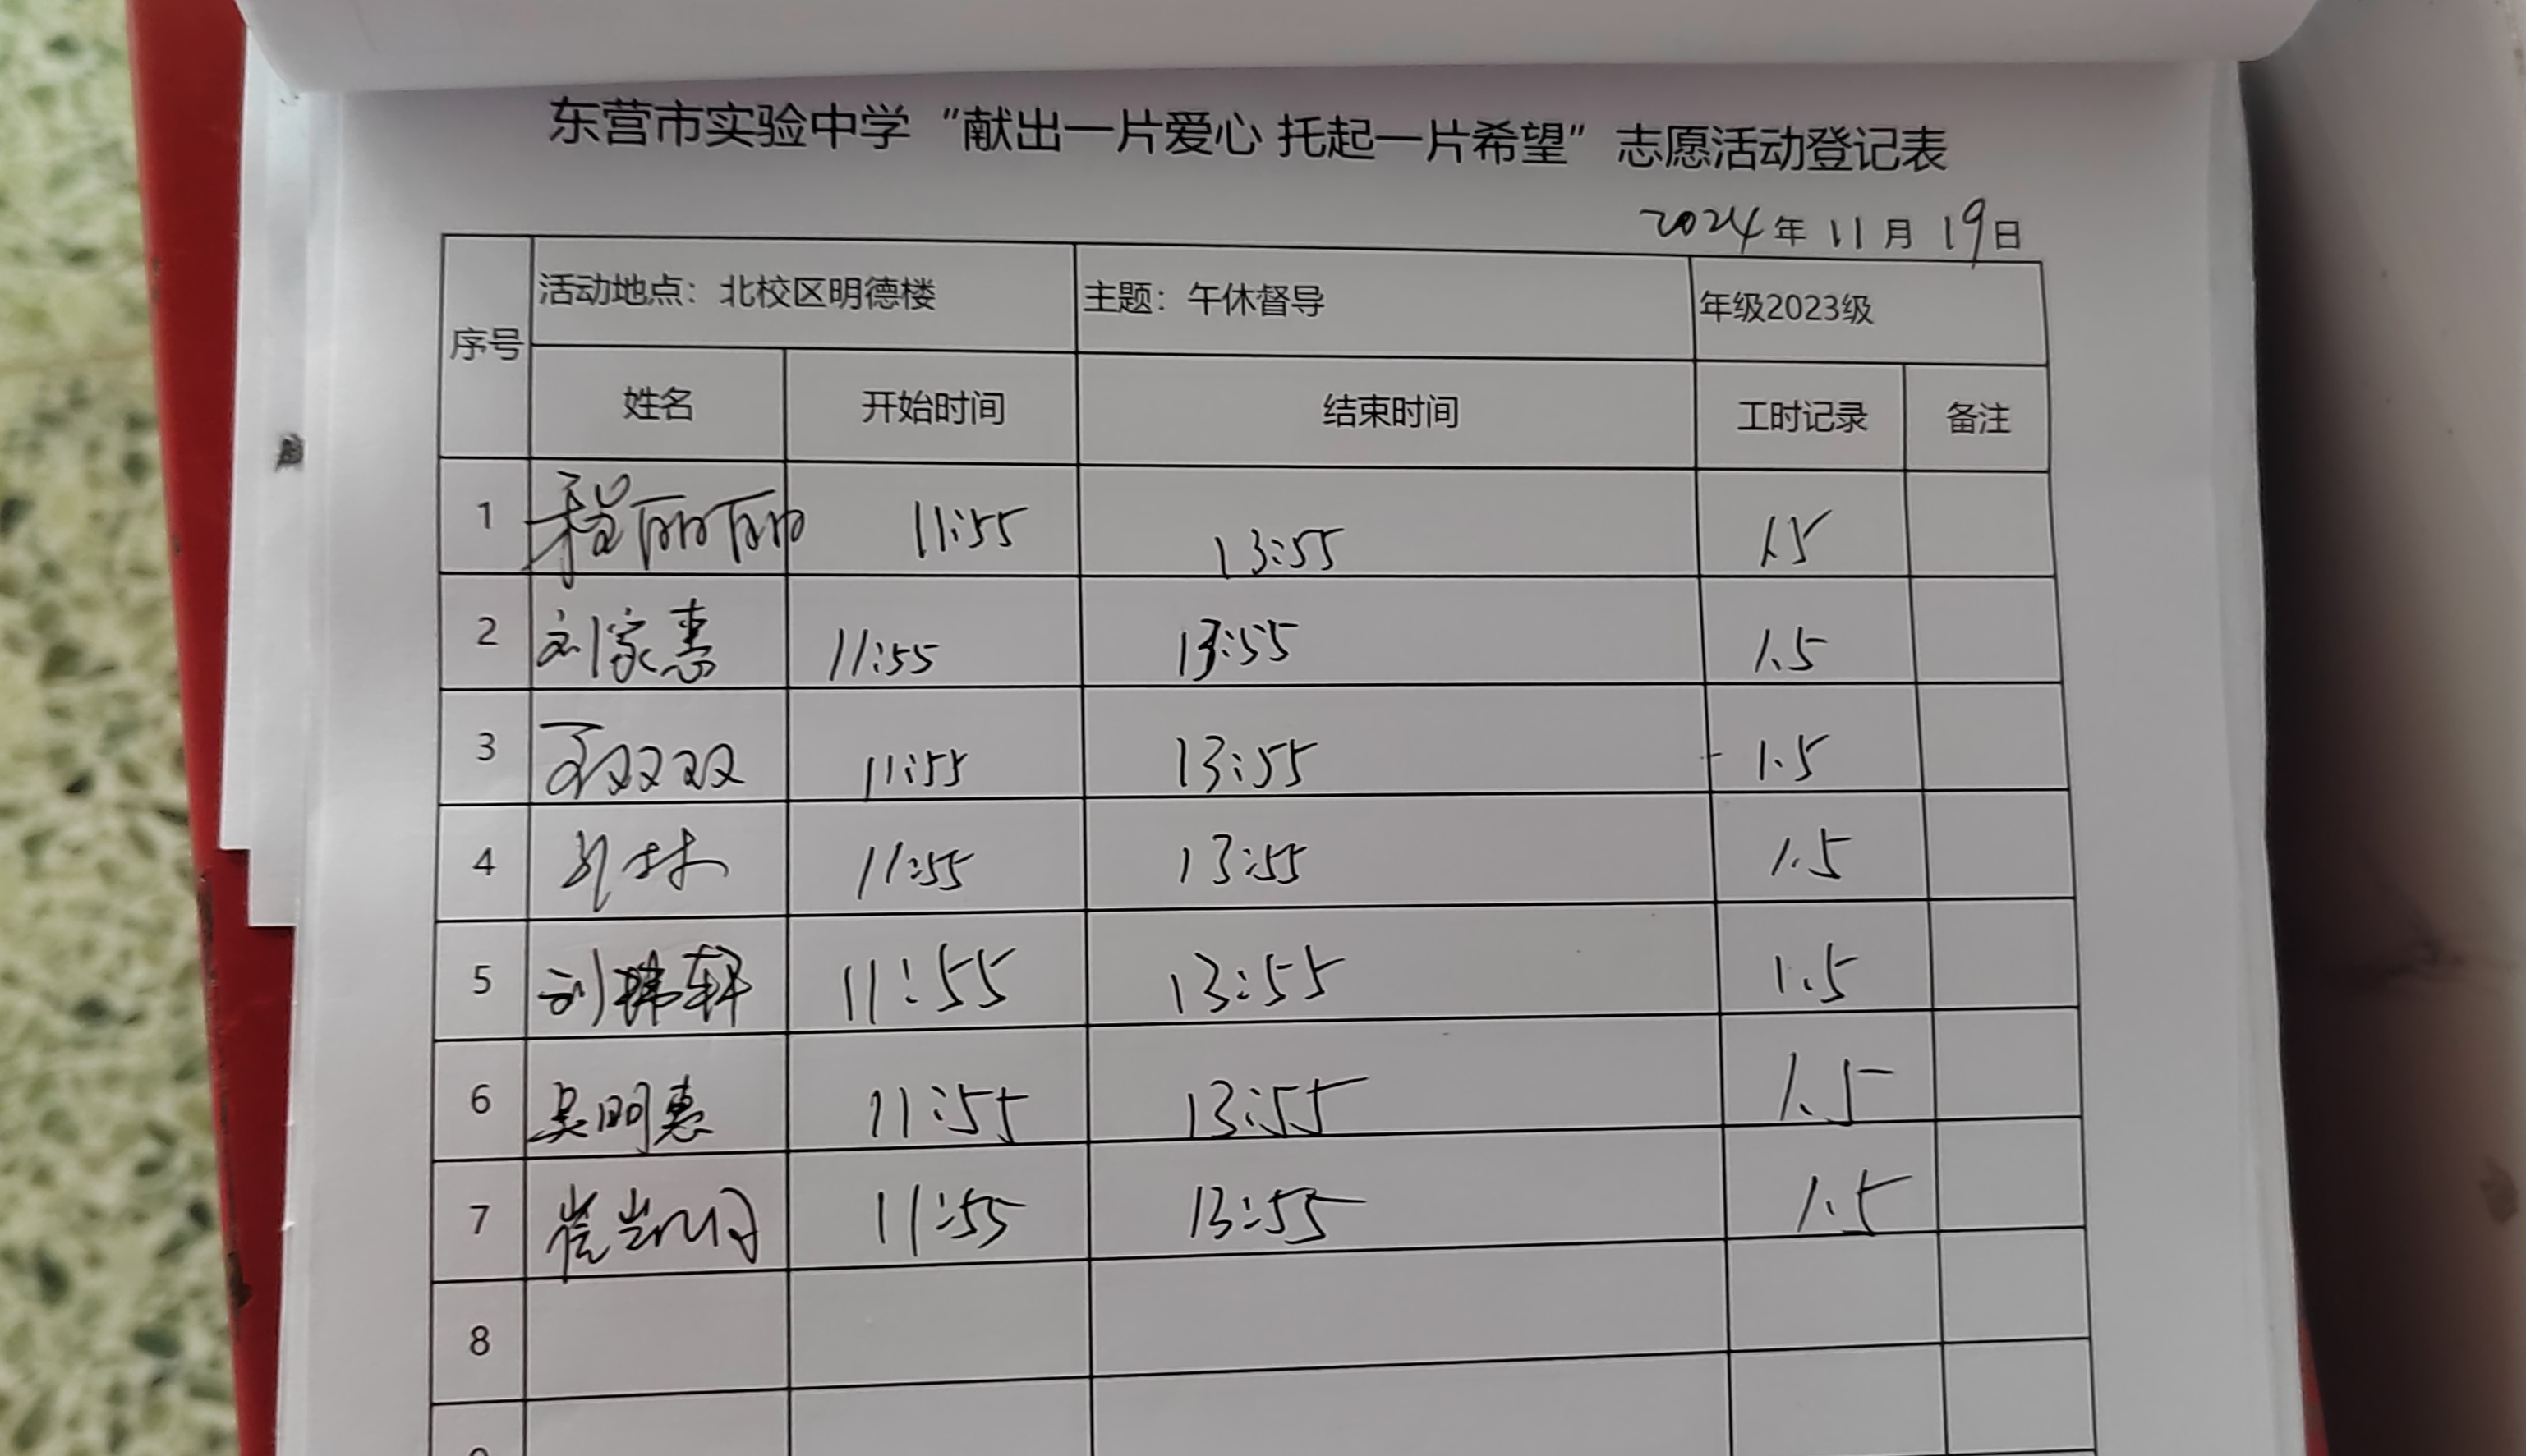 东营市实验中学“献出一片爱心 托起一片希望”志愿活动登记表
2024年 11月 19日
序号 活动地点：北校区明德楼 主题：午休督导 年级2023级
姓名 开始时间 结束时间 工时记录 备注
1 程丽丽 11:55 13:55 1.5
2 刘家惠 11:55 13:55 1.5
3 双双 11:55 13:55 1.5
4 林 11:55 13:55 1.5
5 刘玮轩 11:55 13:55 1.5
6 吴明惠 11:55 13:55 1.5
7 崔凯 11:55 13:55 1.5
8